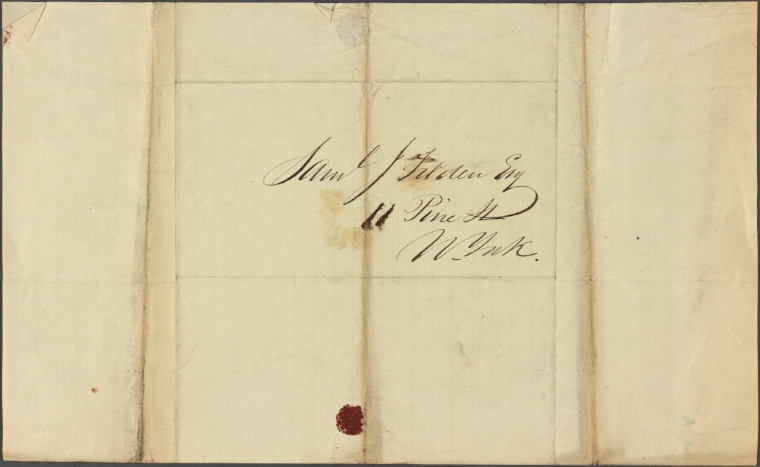 Saml J Tilden Esq
11 Pine St
N. York.